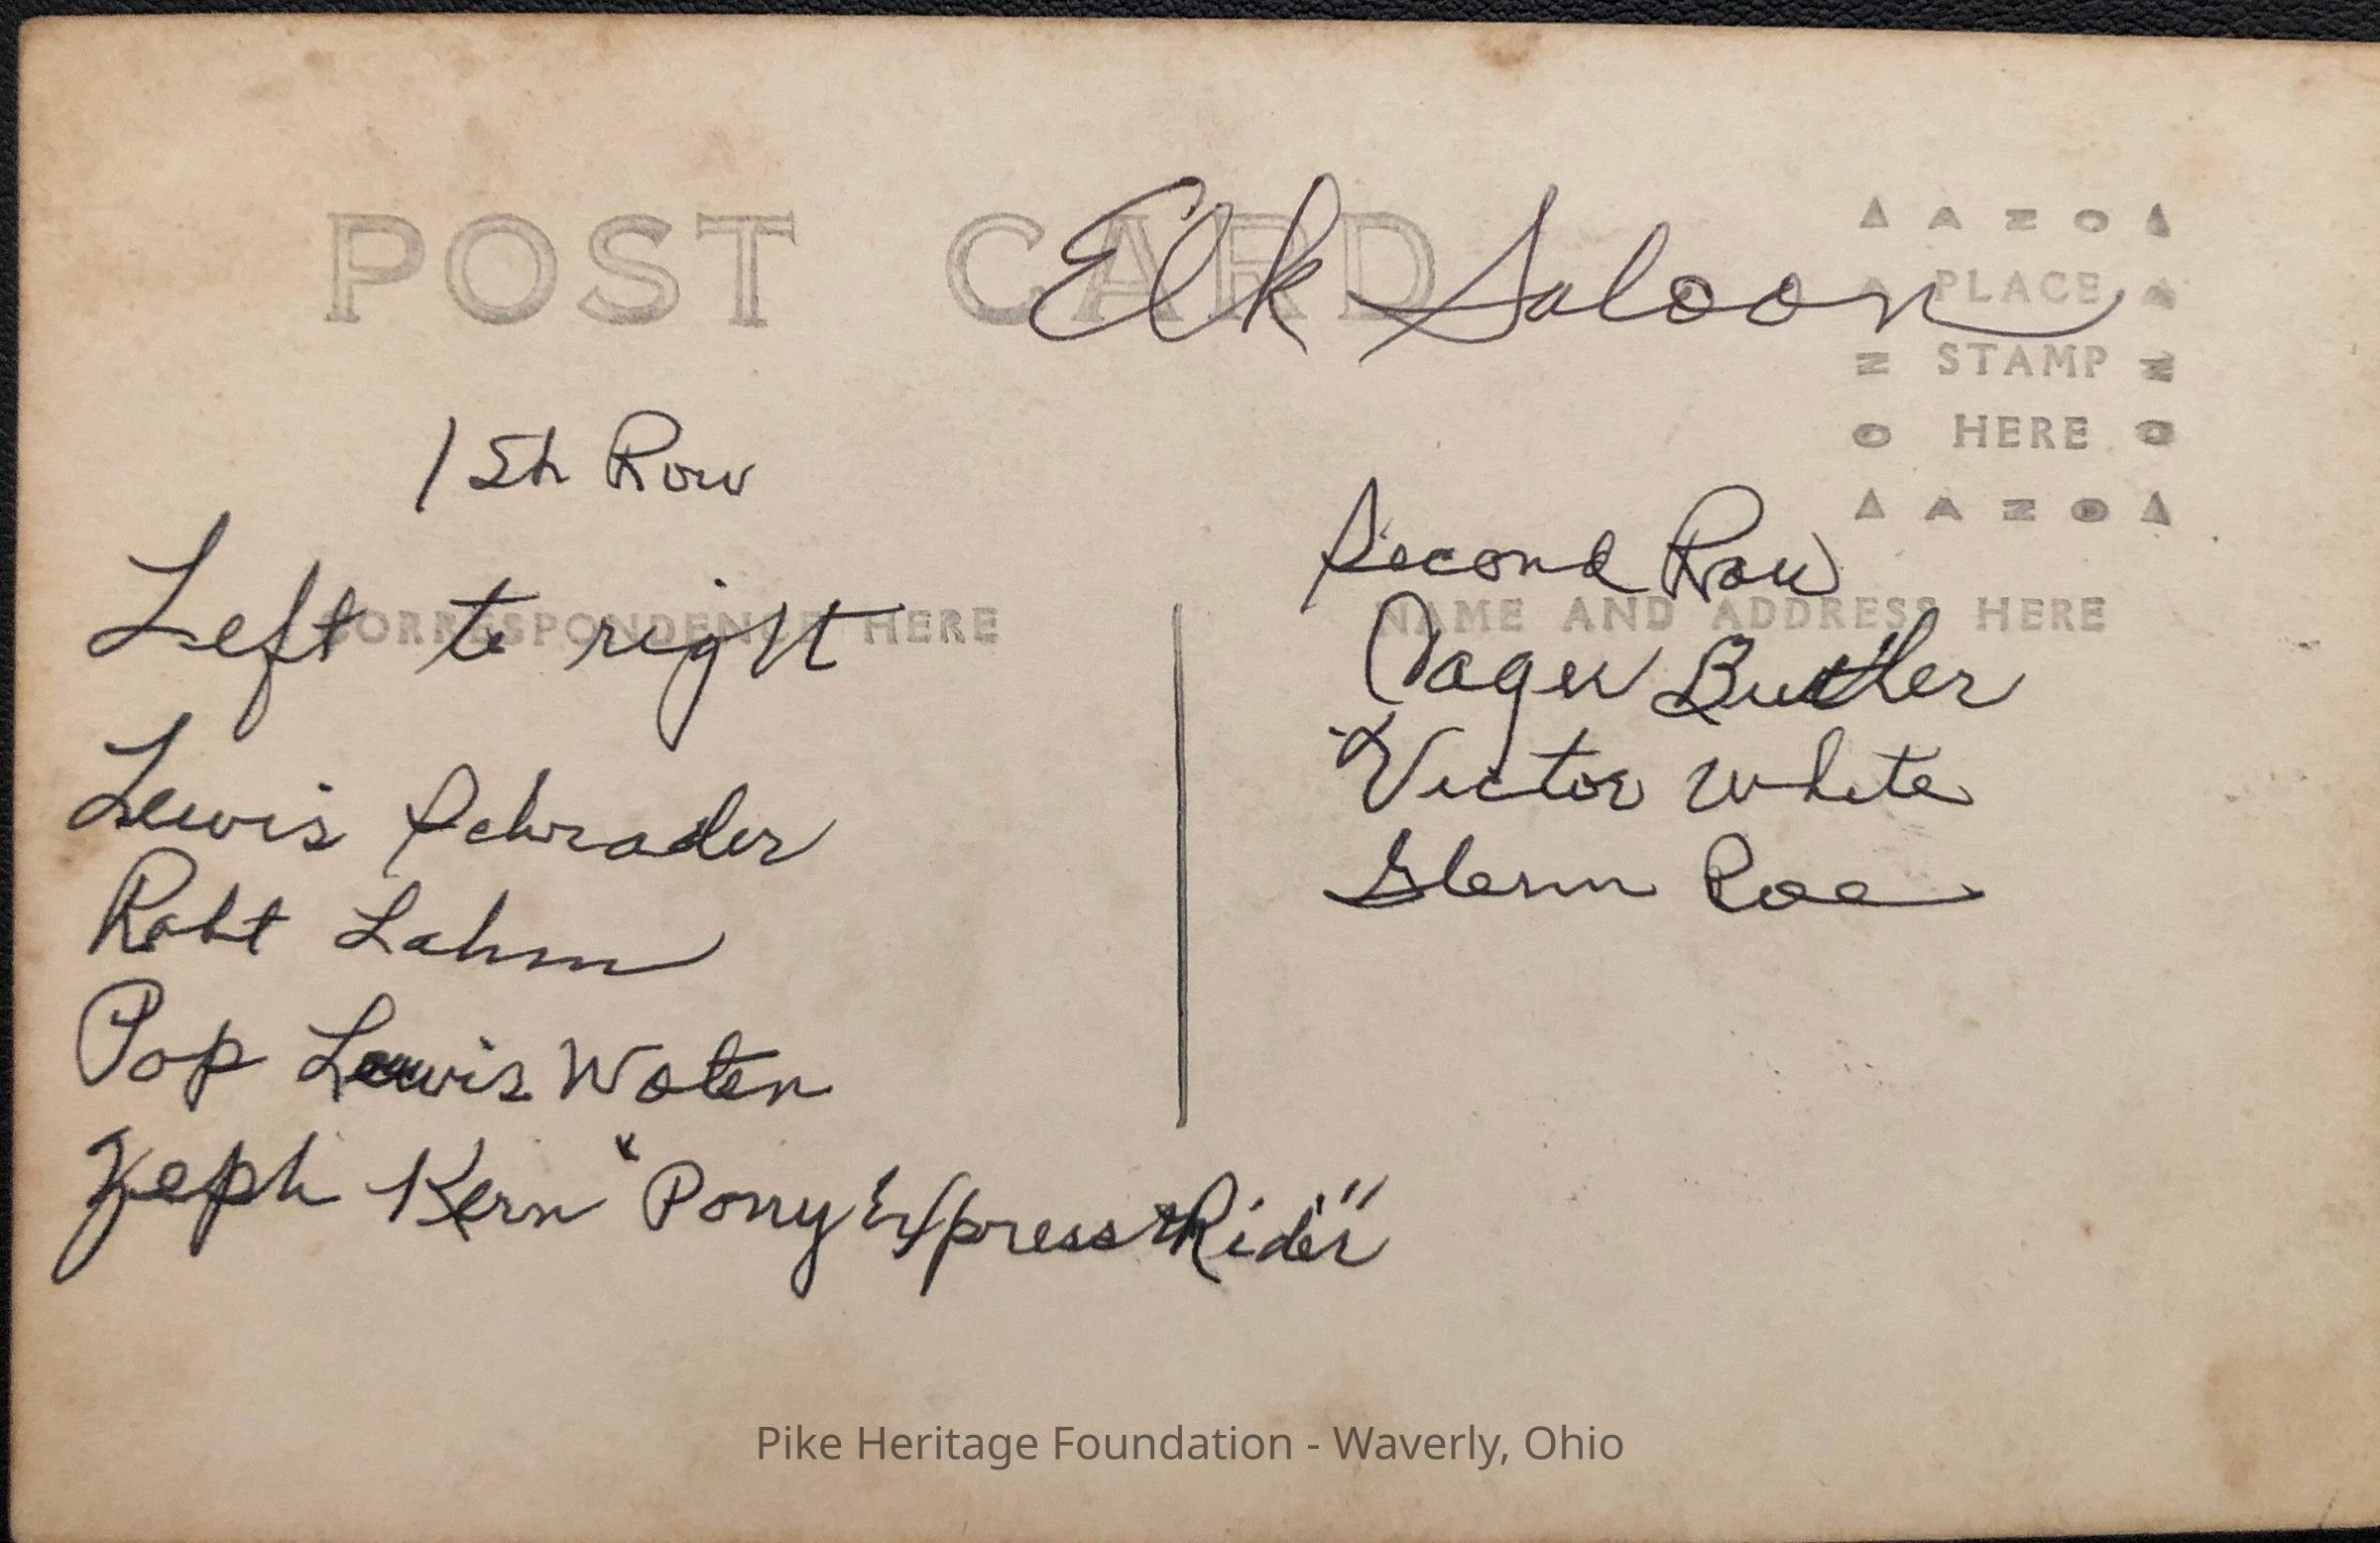 POST CARD
Elk Saloon
AZO
PLACE
STAMP
HERE
AZO
1 St Row
Left to right
CORRESPONDENCE HERE
Lewis Schrader
Robt Lahm
Pop Lewis Woten
Zeph Kern "Pony Express Rider"
Second Row
NAME AND ADDRESS HERE
Butler
Victor White
Glenn Roe
Pike Heritage Foundation - Waverly, Ohio